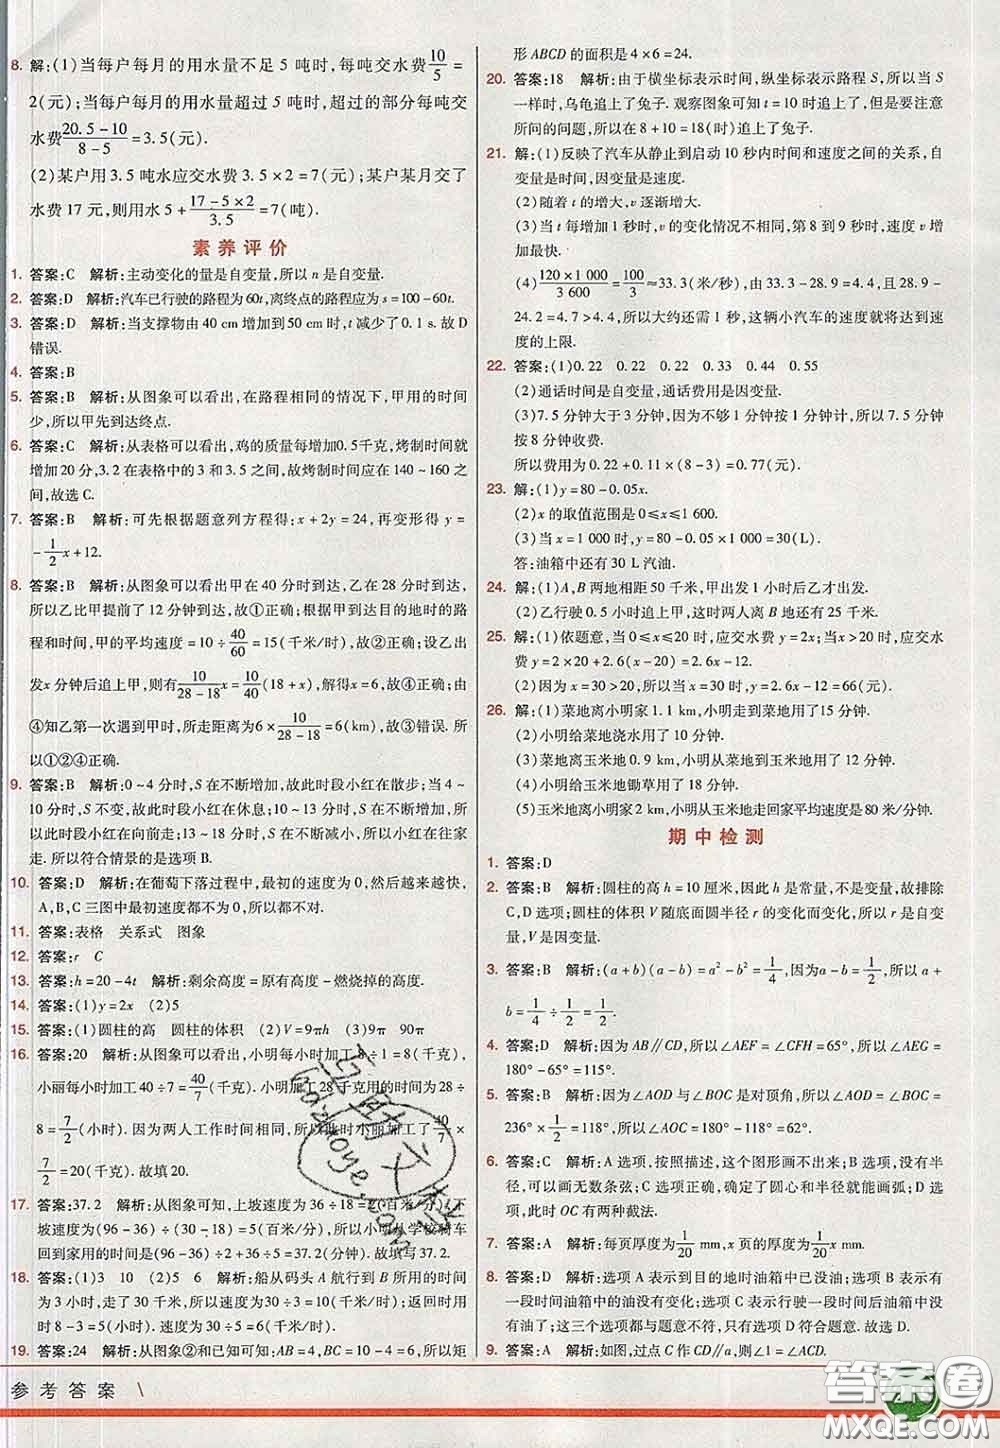 8. 解:(1)当每户每月的用水量不足 5 吨时,每吨交水费10/5=
2(元);当每户每月的用水量超过 5 吨时,超过的部分每吨交
水费(20.5-10)/(8-5)=3.5(元).
(2)某户用 3.5 吨水应交水费 3.5×2=7(元);某户某月交了
水费 17 元,则用水 5+(17-5×2)/3.5=7(吨).
素养评价
1. 答案:C 解析:主动变化的量是自变量,所以 n 是自变量.
2. 答案:D 解析:汽车已行驶的路程为 60t,离终点的路程应为 s=100-60t.
3. 答案:D 解析:当支撑物由 40 cm 增加到 50 cm 时,t 减少了 0.1 s. 故 D
错误.
4. 答案:B
5. 答案:B 解析:从图象可以看出,在路程相同的情况下,甲用的时间
少,所以甲先到达终点.
6. 答案:C 解析:从表格可以看出,鸡的质量每增加0.5千克,烤制时间就
增加 20 分,3.2 在表格中的 3 和 3.5 之间,故烤制时间应在 140~160 之
间,故选 C.
7. 答案:B 解析:可先根据题意列方程得:x+2y=24,再变形得 y=
-1/2x+12.
8. 答案:B 解析:从图象可以看出甲在 40 分时到达,乙在 28 分时到达,
所以乙比甲提前了 12 分钟到达. 故①正确;根据甲到达目的地时的路
程和时间,甲的平均速度=10÷40/60=15(千米/时),故②正确;设乙出
发 x 分钟后追上甲,则有10/(28-18)x=10/40(18+x),解得 x=6,故④正确;由
④知乙第一次遇到甲时,所走距离为 6×10/(28-18)=6(km),故③错误. 所
以①②④正确.
9. 答案:B 解析:0~4 分时,S 在不断增加,故此时段小红在散步;当 4~
10分时,S 不变,故此时段小红在休息;10~13 分时,S 在不断增加,所
以此时段小红在向前走;13~18 分,S 在不断减小,所以小红在往家
走. 所以符合情景的是选项 B.
10. 答案:D 解析:在葡萄下落过程中,最初的速度为 0,然后越来越快,
A,B,C 三图中最初的速度都不为 0,所以都不对.
11. 答案:表格 关系式 图象
12. 答案:r C
13. 答案:h=20-4t 解析:剩余高度=原有高度-燃烧掉的高度.
14. 答案:(1)y=2x (2)5
15. 答案:(1)圆柱的高 圆柱的体积 (2)V=9πh (3)9π 90π
16. 答案:20 解析:从图象可以看出,小明每小时加工 8÷1=8(千克),
小丽每小时加工 40÷7=40/7(千克). 小明加工 28 千克用的时间为 28÷
8=7/2(小时). 因为两人工作时间相同,所以此时小丽加工了40/7×
7/2=20(千克). 故填 20.
17. 答案:37.2 解析:从图象可知,上坡速度为 36÷18=2(百米/分),下
坡速度为(96-36)÷(30-18)=5(百米/分),所以小明从学校骑车
回到家用的时间为(96-36)÷2+36÷5=37.2(分钟). 故填写 37.2.
18. 答案:(1)3 10 (2)5 6 解析:船从码头 A 航行到 B 所用的时间
为 3 小时,走了 30 千米,所以速度为 30÷3=10(千米/时);返回时用
时 8-3=5(小时). 速度为 30÷5=6(千米/时).
19. 答案:24 解析:从图象②和已知可知:AB=4,BC=10-4=6,所以矩
形 ABCD 的面积是 4×6=24.
20. 答案:18 解析:由于横坐标表示时间,纵坐标表示路程 S,所以当 S
一样时,乌龟追上了兔子. 观察图象可知 t=10 时追上了,但是要注意
所问的问题,所以在 8+10=18(时)乌龟追上了兔子.
21. 解:(1)反映了汽车从静止到启动 10 秒内时间和速度之间的关系,自
变量是时间,因变量是速度.
(2)随着 t 的增大,v 逐渐增大.
(3)当 t 每增加 1 秒时,v 的变化情况不相同. 第 8 到 9 秒时,速度 v
增加最快.
(4)(120×1 000)/3 600=100/3≈33.3(米/秒),由 33.3-28.9=4.4,且 28.9-
24.2=4.7>4.4,所以大约还需 1 秒,这辆小汽车的速度就将达到速
度的上限.
22. 答案:(1)0.22 0.22 0.33 0.44 0.55
(2)通话时间是自变量,通话费用是因变量.
(3)7.5 分钟大于 3 分钟,因为不够 1 分钟按 1 分钟计,所以 7.5 分钟
按 8 分钟收费.
所以费用为 0.22+0.11×(8-3)=0.77(元).
23. 解:(1)y=80-0.05x.
(2)x 的取值范围是 0≤x≤1 600.
(3)当 x=1 000 时,y=80-0.05×1 000=30(L).
答:油箱中还有 30 L 汽油.
24. 解:(1)A,B 两地相距 50 千米,甲出发 1 小时后乙才出发.
(2)乙行驶 0.5 小时追上甲,这时两人离 B 地还有 25 千米.
25. 解:(1)依题意,当 0≤x≤20 时,应交水费 y=2x;当 x>20 时,应交水
费 y=2×20+2.6(x-20)=2.6x-12.
(2)因为 x=30>20,所以 y=2.6×30-12=66(元).
26. 解:(1)菜地离小明家 1.1 km,小明走到菜地用了15分钟.
(2)小明给菜地浇水用了 10 分钟.
(3)菜地离玉米地 0.9 km,小明从菜地到玉米地用了 12 分钟.
(4)小明给玉米地锄草用了 18 分钟.
(5)玉米地离小明家 2 km,小明从玉米地走回家平均速度是 80 米/分钟.
期中检测
1. 答案:D
2. 答案:B 解析:圆柱的高 h=10 厘米,因此 h 是常量,不是变量,故排除
C,D 选项;圆柱的体积 V 随底面圆半径 r 的变化而变化,所以 r 是自变
量,V 是因变量.
3. 答案:B 解析:(a+b)(a-b)=a²-b²=1/4,因为a-b=1/2,所以 a+
b=1/4÷1/2=1/2.
4. 答案:D 解析:因为 AB∥CD,所以∠AEF=∠CFH=65°,所以∠AEG=
180°-65°=115°.
5. 答案:B 解析:因为∠AOD 与∠BOC 是对顶角,所以∠AOD=∠BOC=
236°×1/2=118°,所以∠AOC=180°-∠BOC=180°-118°=62°.
6. 答案:C 解析:A 选项,按照描述,这个图形画不出来;B 选项,可以
画出无数条弦;C 选项正确,确定了圆心和半径就能画出弧;D 选项,
由此时 OC 有两种截法.
7. 答案:A 解析:每页厚度为1/20 mm,x 页的厚度为1/20x mm.
8. 答案:D 解析:选项 A 表示到目的地时油箱中已没油;选项 B 表示在
有一段时间油箱中的油没有变化;选项 C 表示行驶一段时间后油箱中
没有油了;这三个选项都与题意不符,只有选项 D 符合题意. 故选 D.
9. 答案:A 解析:如图,过点 C 作 CD∥a,则∠1=∠ACD.
参考答案
答案圈
MXQE.COM